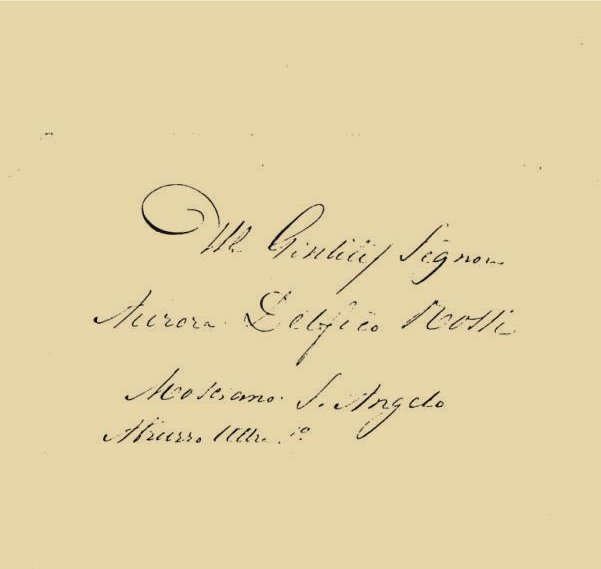 Alla Gentilis Signora
Aurora Delfico Rossi
Mosciano S. Angelo
Abruzzo Ultr. 1º